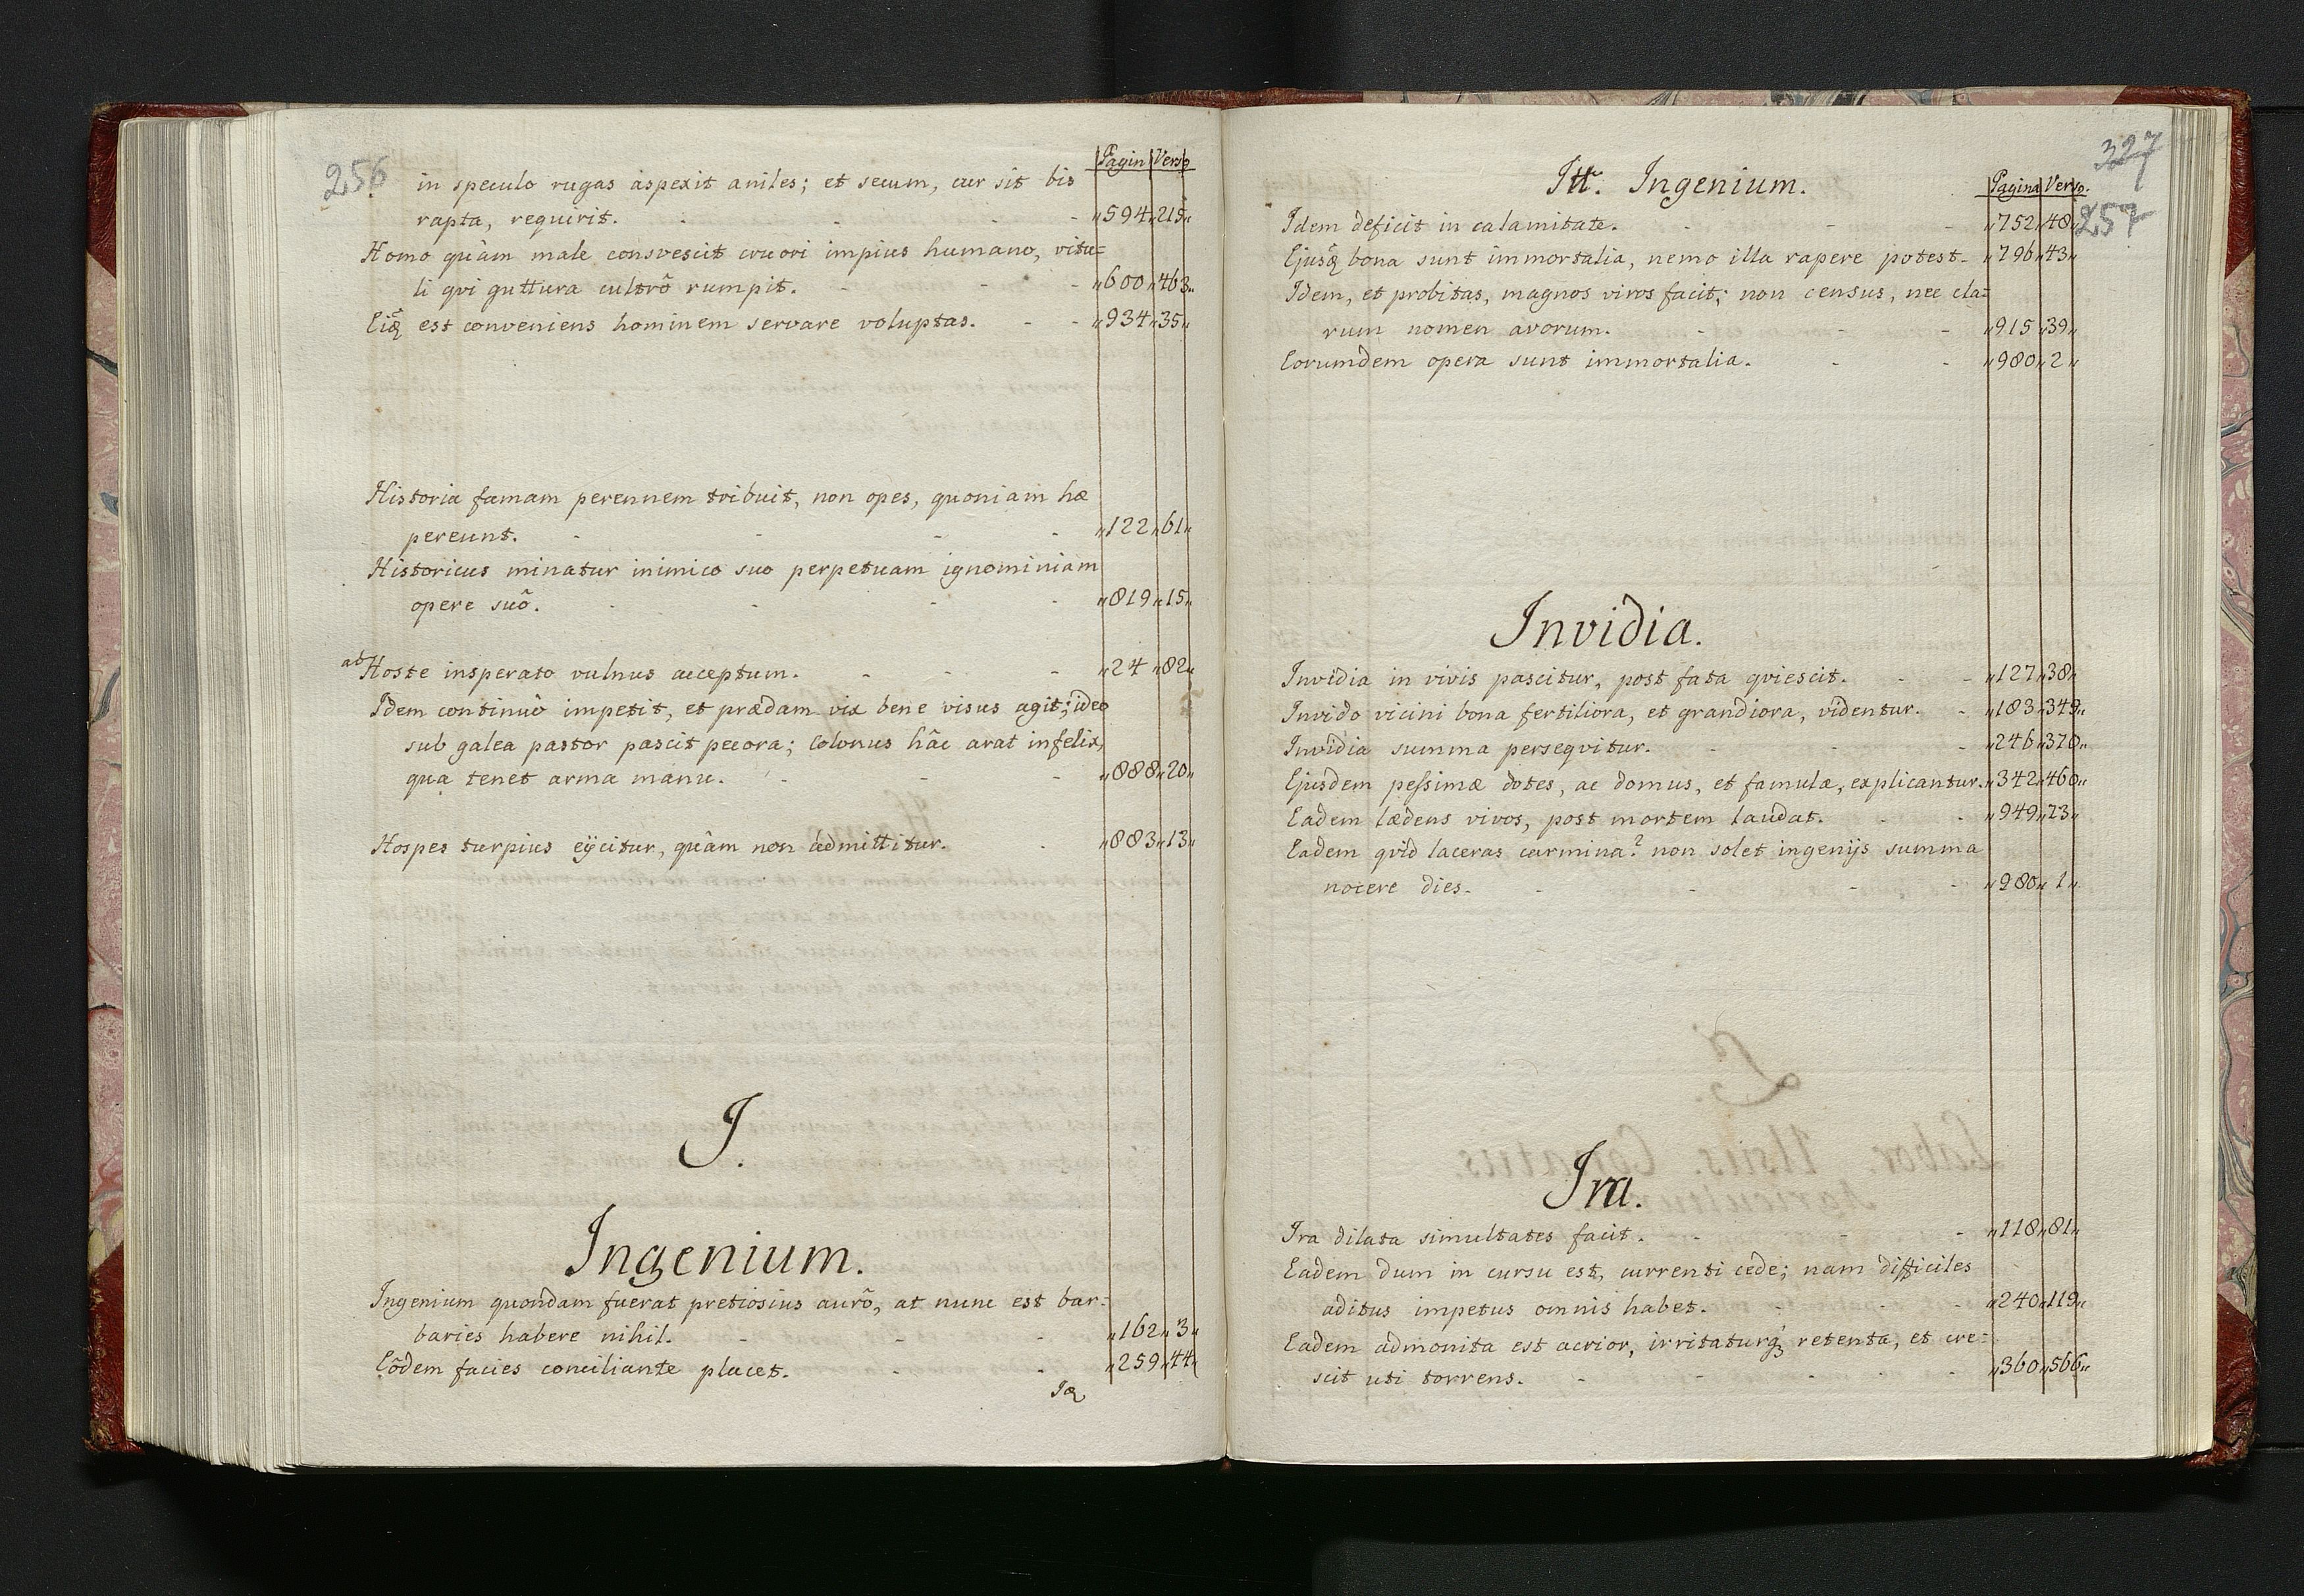 256
Pagin Verso
in speculo rugas aspexit aniles; et secum, cur sit bis
rapta, requirit. - - - - „594„215„
Homo quàm male consvescit cruori impius humano, vitu=
li qvi guttura cultrô rumpit. - - - „600„463„
Eiq̃ est conveniens hominem servare voluptas. - - „934„35„
Historia famam perennem tribuit, non opes, quoniam hæ
pereunt. - - - - „122„61„
Historicus minatur inimico suo perpetuam ignominiam
opere suô. - - - - „819„15„
ab Hoste insperato vulnus acceptum. - - - „24„82„
Idem continuò impetit, et prædam vix bene visus agit; ideo
sub galea pastor pascit pecora; Colonus hâc arat infelix,
qua tenet arma manu. - - - „888„20„
Hospes turpius eÿcitur, quâm non admittitur. - „883„13„
I.
Ingenium.
Ingenium quondam fuerat pretiosius aurô, at nunc est bar=
baries habere nihil. - - - „162„3„
Eôdem facies conciliante placet. - - „259„44„
327
Itt. Ingenium.
Pagina Verso.
257
Idem deficit in calamitate. - - - „752„48„
Ejusq̃ bona sunt immortalia, nemo illa rapere potest- „796„43„
Idem, et probitas, magnos viros facit; non census, nec cla=
rum nomen avorum. - - - „915„39„
Eorumdem opera sunt immortalia. - - „980„2„
Invidia.
Invidia in vivis pascitur, post fata qviescit. - - „127„38„
Invido vicini bona fertiliora, et grandiora, videntur. - „183„349„
Invidia summa perseqvitur. - - - „246„370„
Ejusdem peſsimæ dotes, ac domus, et famulæ, explicantur. „342„460„
Eadem lædens vivos, post mortem laudat. - - „949„23„
Eadem qvid laceras carmina? non solet ingenijs summa
nocere dies. - - - - „980„1„
Ira.
Ira dilata simultates facit. - - - „118„81„
Eadem dum in cursu est, currenti cede; nam difficiles
aditus impetus omnis habet. - - - „240„119„
Eadem admonita est acrior, irritaturq́ retenta, et cre=
scit uti torrens. - - - - - „360„566„